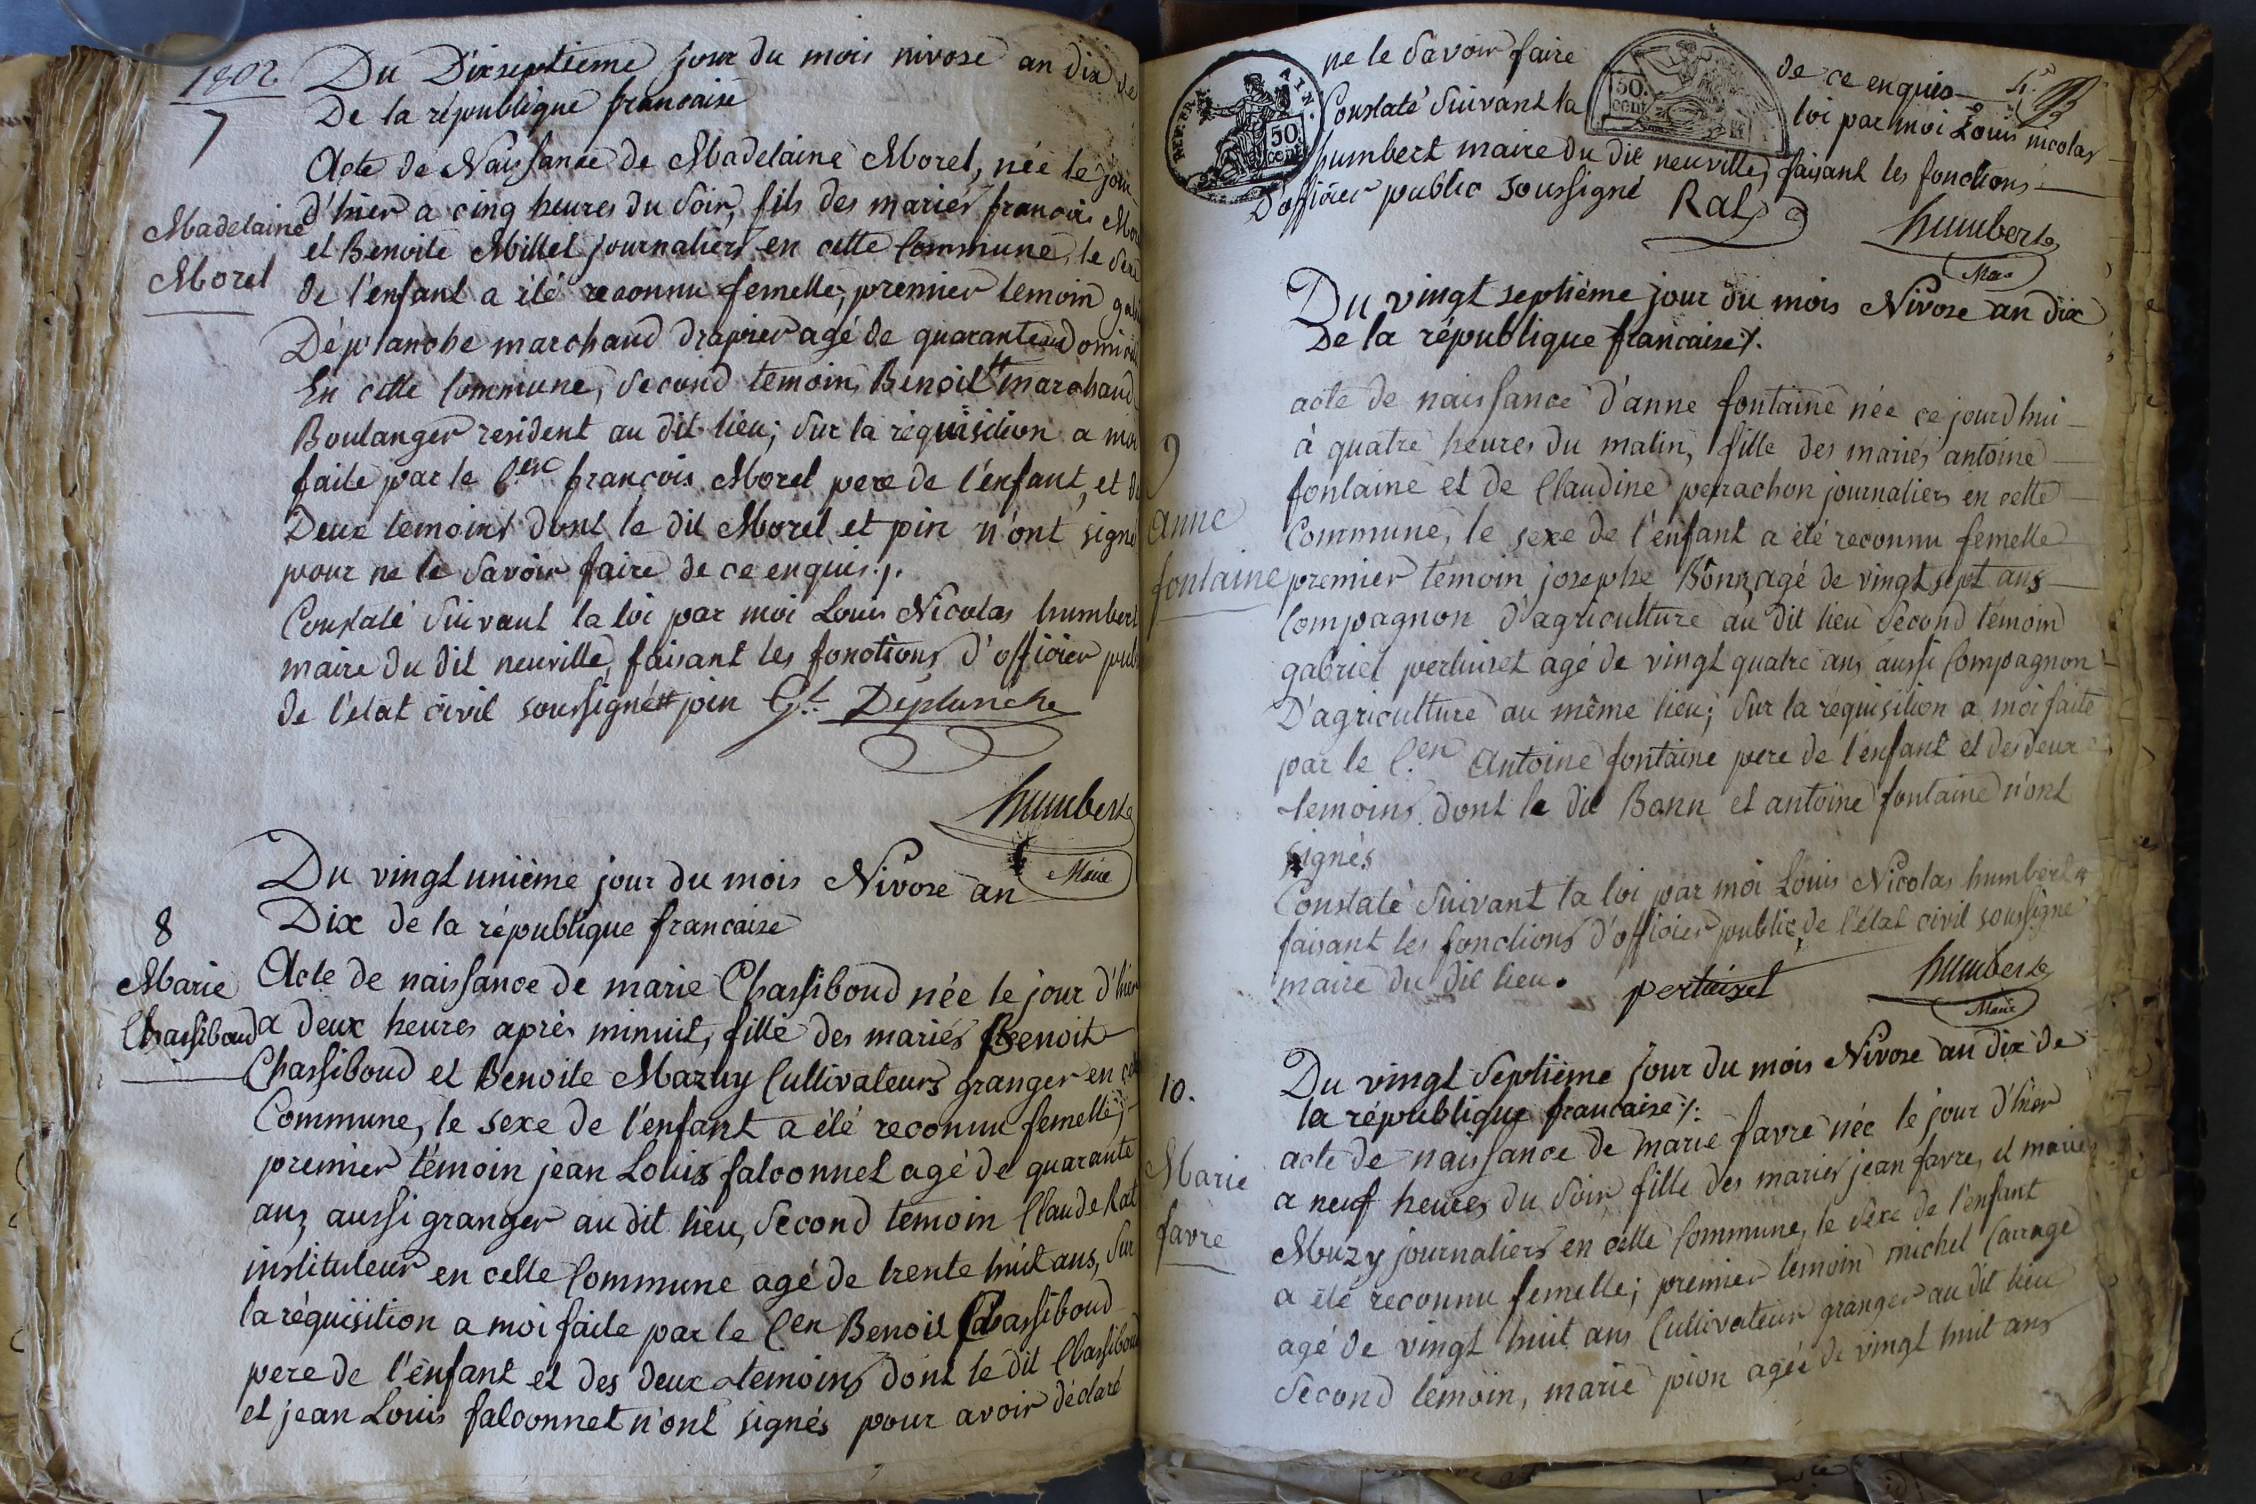 1802.
Du Dixseptieme jour du mois nivose an dix de
De la république francaise
7
Acte de Naissance de Madelaine Morel, née le jour
d'hier a cinq heures du soir, fils des mariés francois Mor
Madelaine
Morel
et Benoite Millet journaliers en cette Commune, le sexe
de l'enfant a été reconnu femelle, premier temoin gab
Déplanche marchand drapier agé de quarante
En cette Commune, second temoin, Benoit marchand
Boulanger resident au dit lieu; sur la réquisition a moi
faite par le C.en françois Morel pere de l'enfant, et d
Deux temoins dont le dit Morel et pin n'ont signé
pour ne le savoir faire de ce enquis ./.
Constaté suivant la loi par moi Louis Nicolas humbert
maire du dit neuville, faisant les fonctions d'officier pub
de l'état civil soussigné pin G.l Déplanche
humbert
Maire
Du vingt unième jour du mois Nivose an
Dix de la république francaise
8
Marie
Chassiboud
Acte de naissance de marie Chassiboud née le jour d'hier
a deux heures après minuit, fille des mariés Benoit
Chassiboud et Benoite Mazuy Cultivateurs granger en
Commune, le sexe de l'enfant a été reconnu femelle;
premier témoin jean Louis falconnet agé de quarante
ans aussi granger au dit lieu, second temoin Claude Rat
instituteur en cette Commune agé de trente huit ans, sur
la réquisition a moi faite par le C.en Benoit Chassiboud
pere de l'enfant et des deux temoins dont le dit Chassiboud
et jean Louis falconnet n'ont signés pour avoir déclaré
ne le savoir faire de ce enquis
Constaté suivant la loi par moi Louis nicolas
humbert maire du dit neuville, faisant les fonctions
D'officier public soussigné Rat
humbert
Maire
50.
cent
50
cent
Du vingt septième jour du mois Nivose an dix
De la république francaise ./.
9
anne
fontaine
acte de naissance d'anne fontaine née ce jourd'hui
à quatre heures du matin, fille des mariés antoine
fontaine et de Claudine perrachon journaliers en cette
Commune, le sexe de l'enfant a été reconnu femelle
premier témoin josephe Bonn agé de vingt sept ans
Compagnon d'agriculture au dit lieu second témoin
gabriel pertuiset agé de vingt quatre ans aussi Compagnon
D'agriculture au même lieu; sur la réquisition a moi faite
par le C.en Antoine fontaine pere de l'enfant et des deux
temoins dont le dit Bonn et antoine fontaine n'ont
signés
Constaté suivant la loi par moi Louis Nicolas humbert
faisant les fonctions d'officier public, de l'état civil soussigné
maire du dit lieu. pertuiset
humbert
Maire
Du vingt septième jour du mois Nivose an dix de
la république francaise ./.
10.
Marie
favre
acte de naissance de marie favre née le jour d'hier
a neuf heures du soir fille des mariés jean favre, et marie
Muzy journaliers en cette Commune, le sexe de l'enfant
a été reconnu femelle; premier temoin michel Carrage
agé de vingt huit ans Cultivateur granger au dit lieu
second témoin, marie pion agée de vingt huit ans